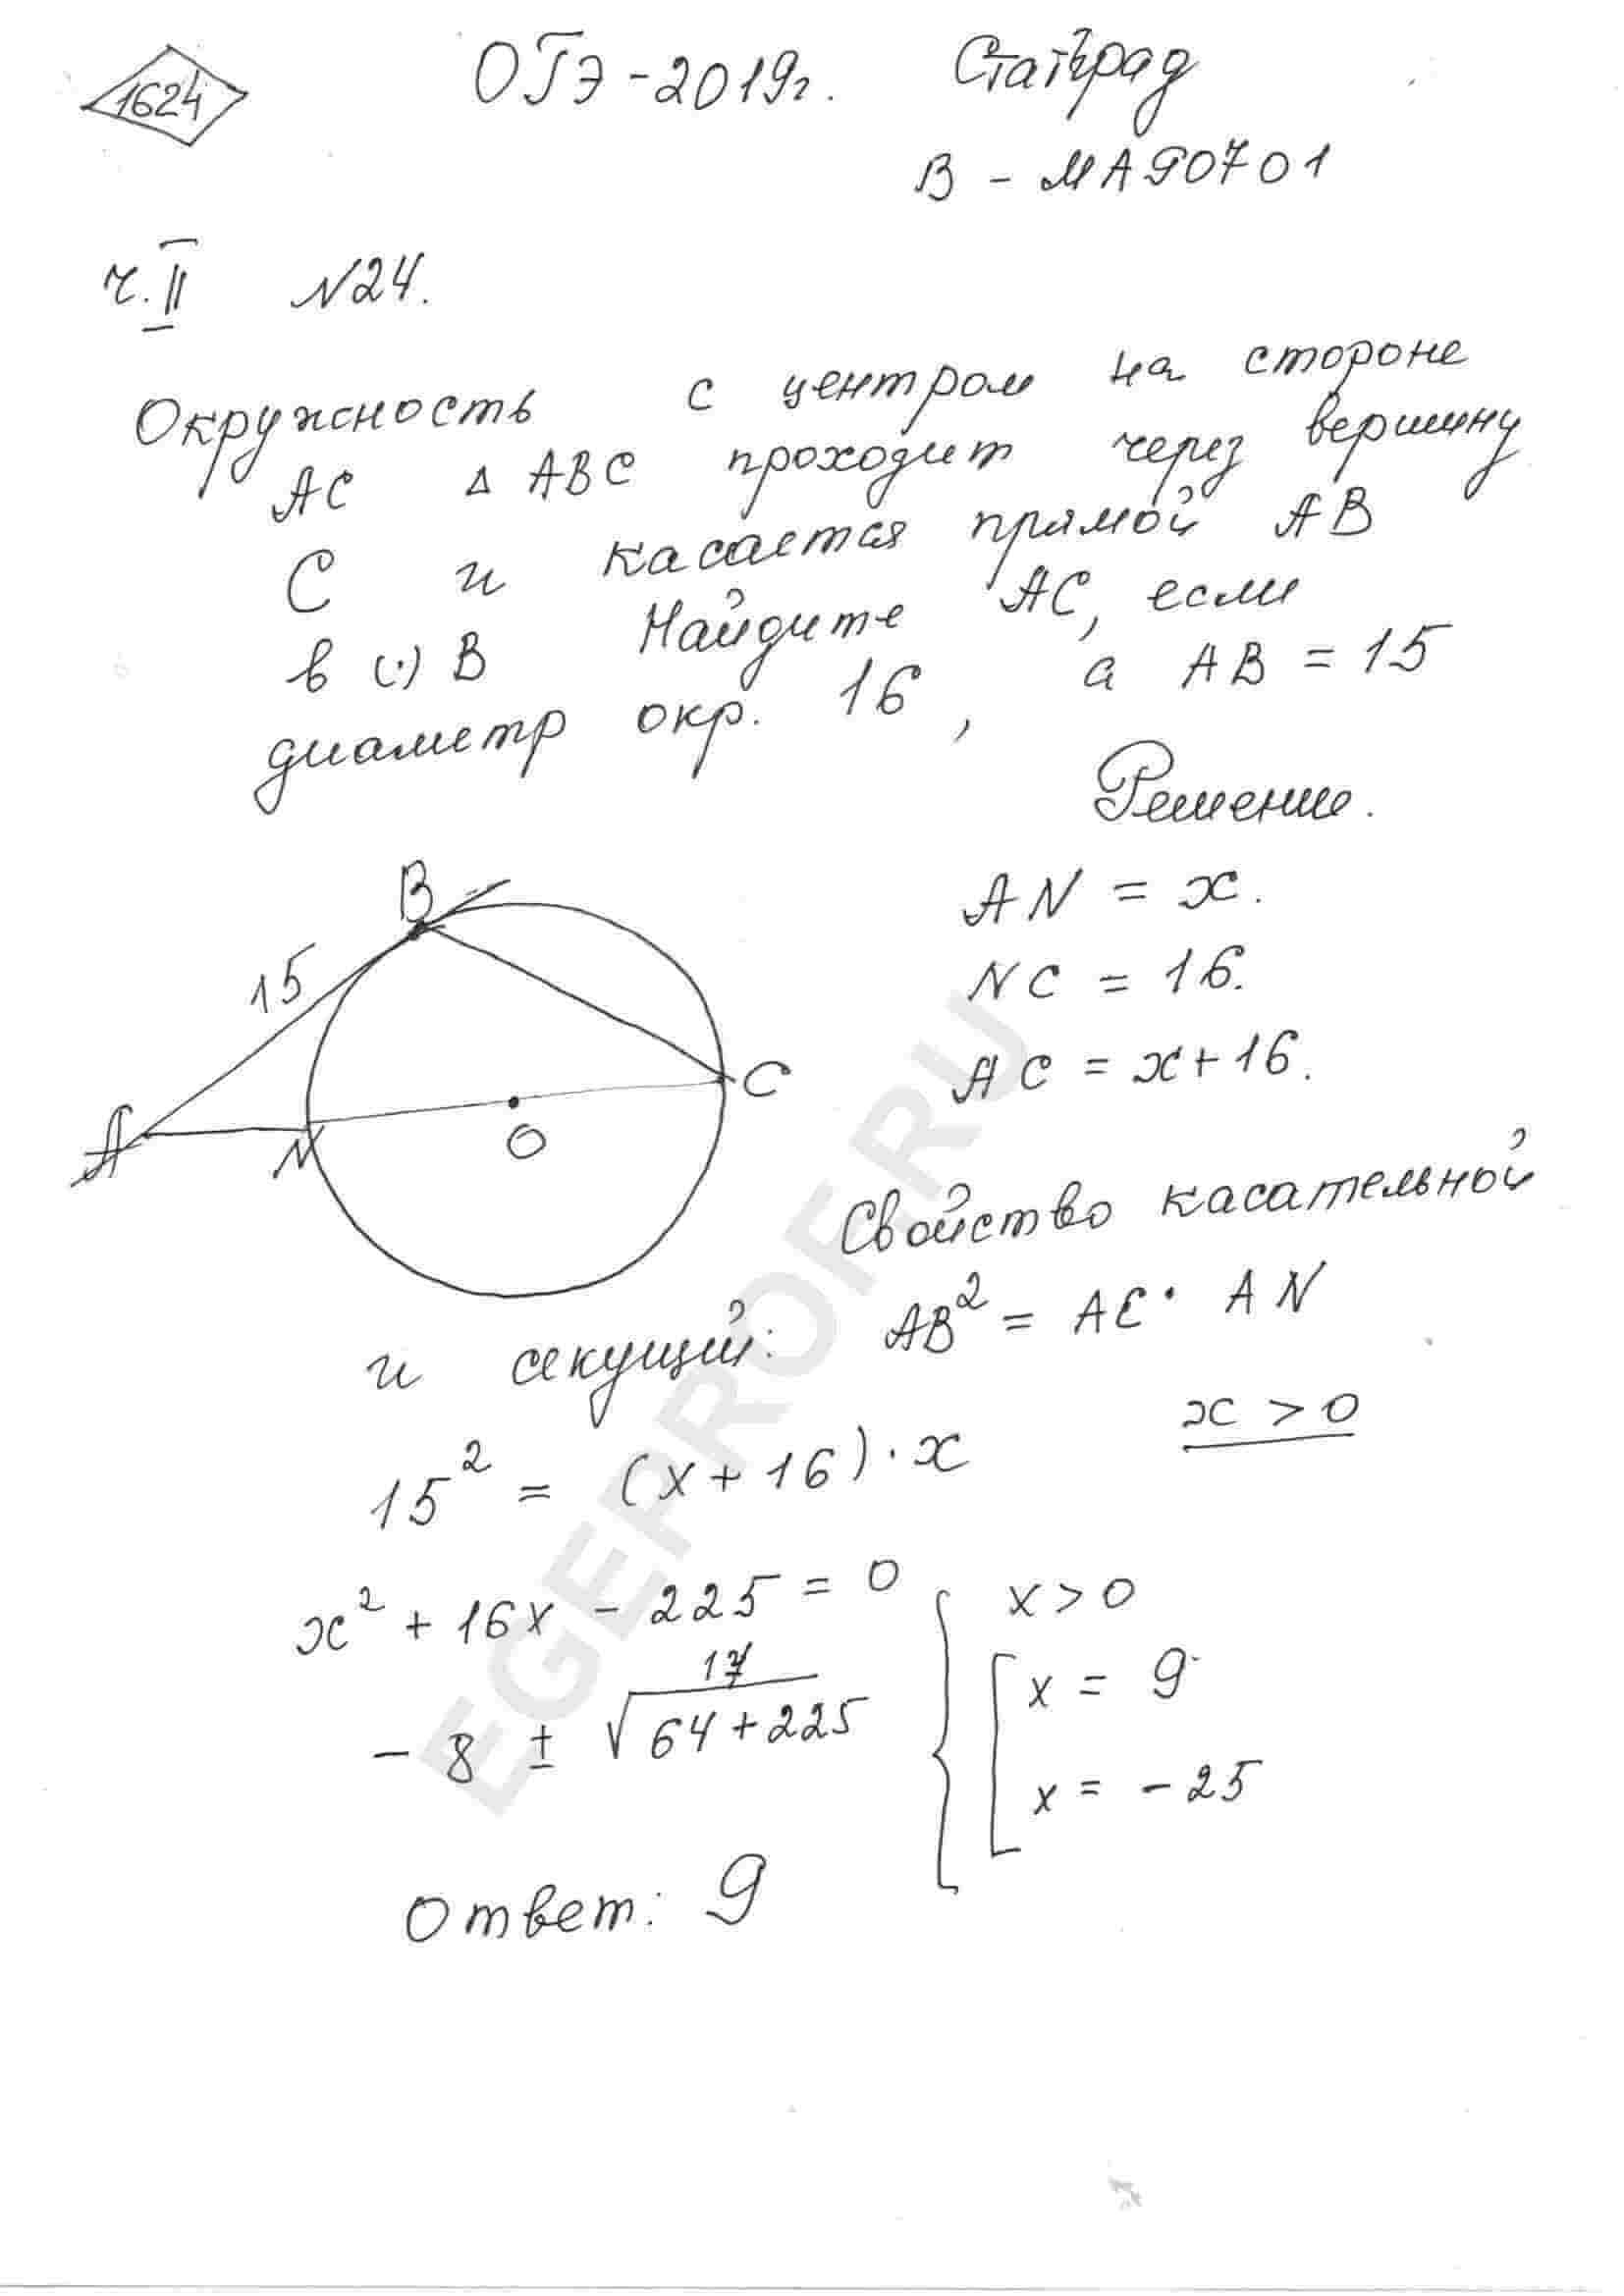 1624
ОГЭ-2019г. Статград
В - МА90701
ч. II №24.
Окружность с центром на стороне
АС Δ АВС проходит через вершину
С и касается прямой АВ
в (·) В Найдите АС, если
диаметр окр. 16, а АВ = 15
Решение.
B
15
A
N
O
C
AN = x.
NC = 16.
AC = x+16.
Свойство касательной
и секущий: AB² = AC · AN
x > 0
15² = (x+16)·x
x² + 16x - 225 = 0
17
- 8 ± √64+225
{ x > 0
[ x = 9
x = -25
Ответ: 9
EGEPROF.RU